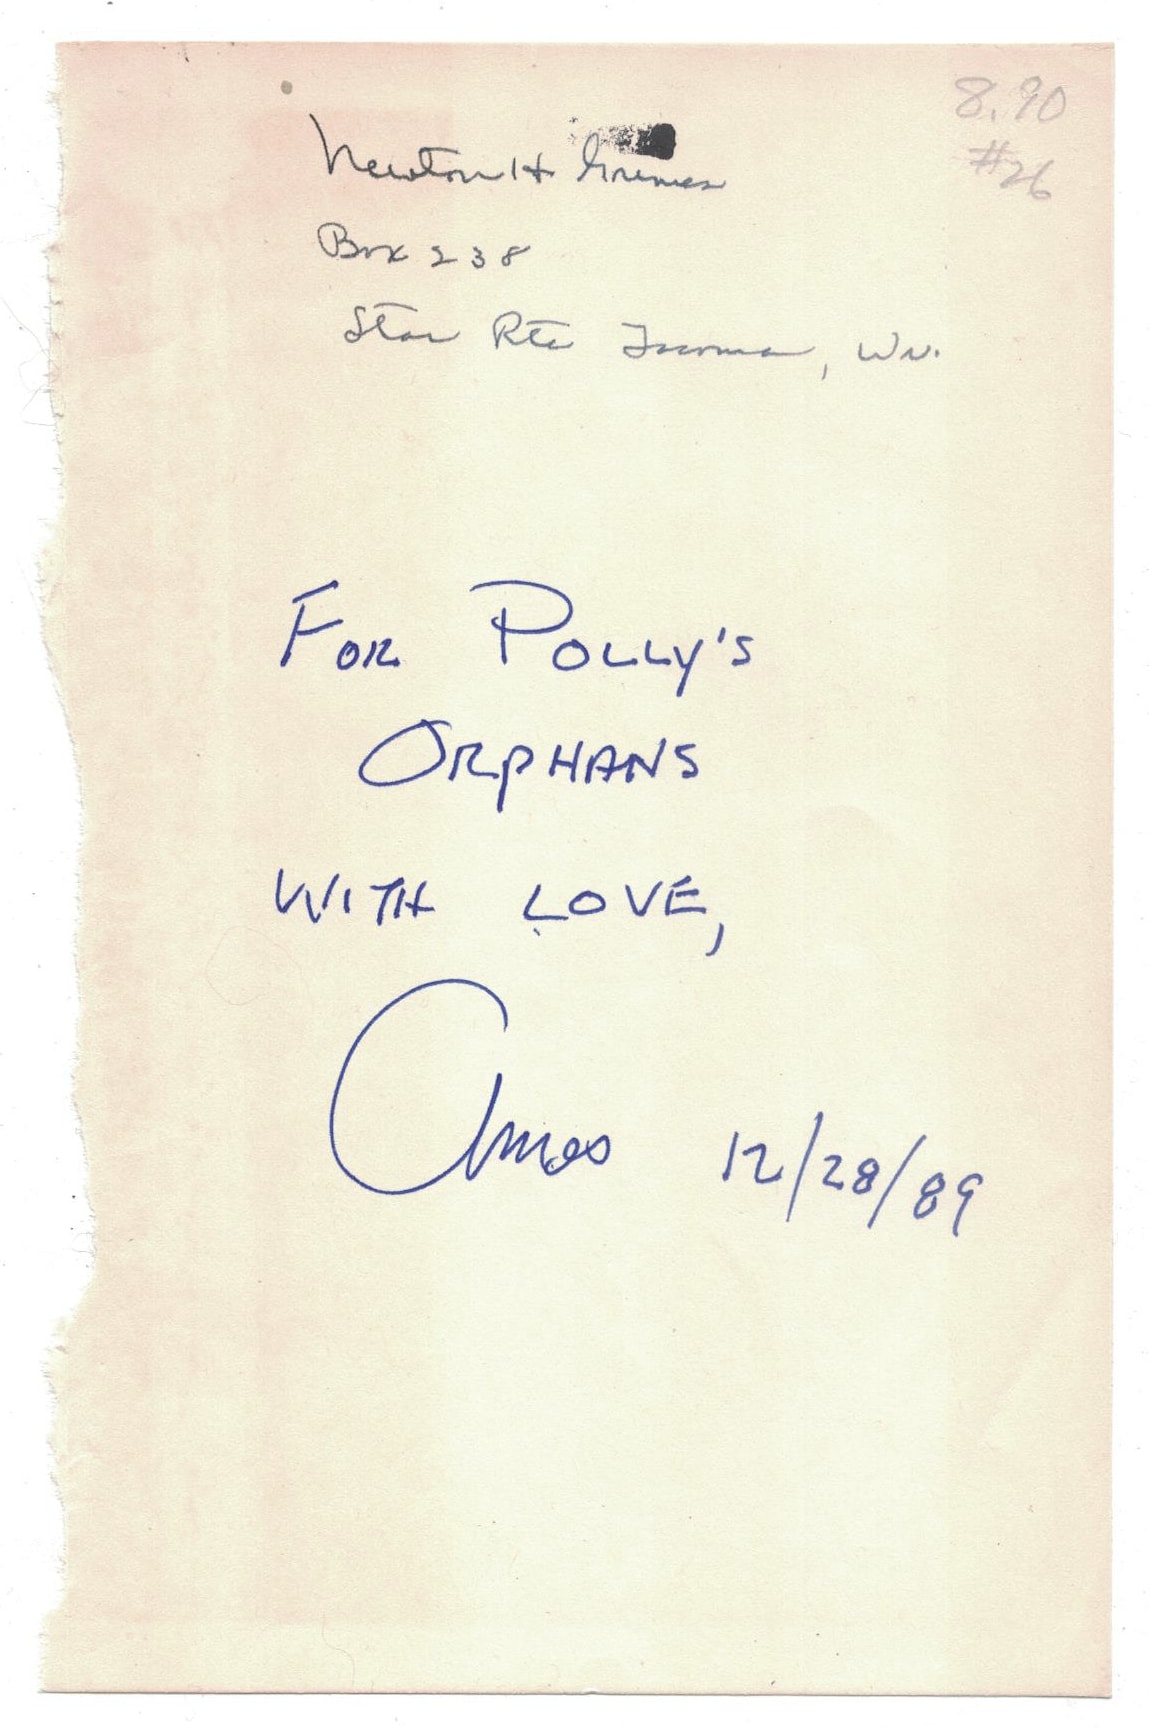 8.90
#26
Newton H Grimes
Box 238
Star Rte Tacoma, Wn.
For Polly's
Orphans
With Love,
Amos 12/28/89